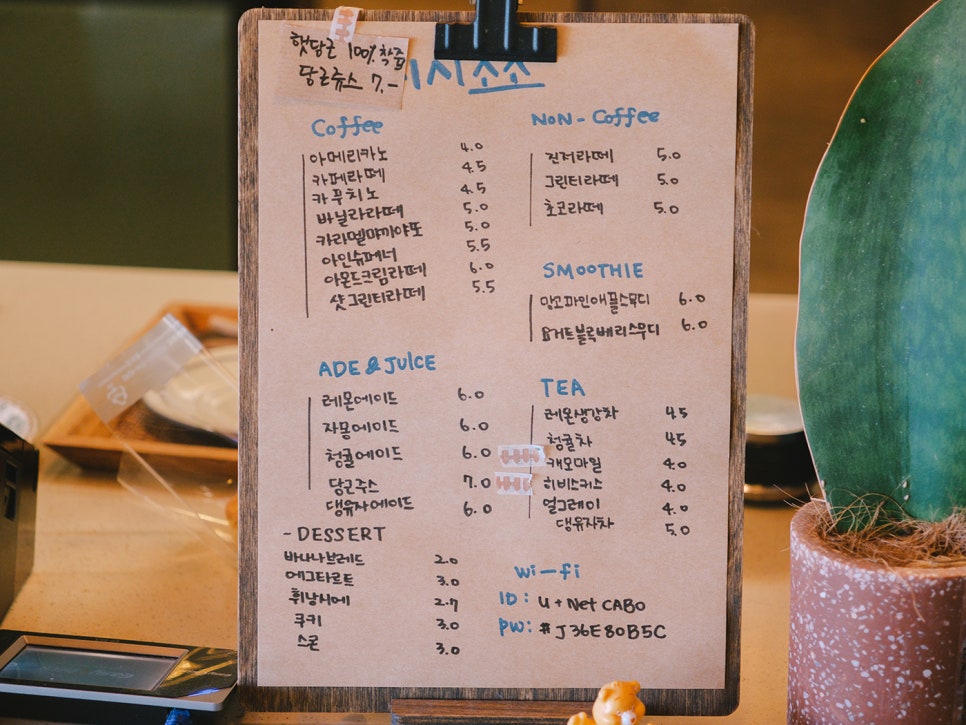 햇당근 100% 착즙
당근쥬스 7.-
시소소
Coffee
아메리카노 4.0
카페라떼 4.5
카푸치노 4.5
바닐라라떼 5.0
카라멜먀끼야또 5.0
아인슈페너 5.5
아몬드크림라떼 6.0
샷그린티라떼 5.5
ADE & JUICE
레몬에이드 6.0
자몽에이드 6.0
청귤에이드 6.0
당근주스 7.0
댕유자에이드 6.0
-DESSERT
바나나브레드 2.0
에그타르트 3.0
휘낭시에 2.7
쿠키 3.0
스콘 3.0
NON-Coffee
진저라떼 5.0
그린티라떼 5.0
초코라떼 5.0
SMOOTHIE
망고파인애플스무디 6.0
요거트블루베리스무디 6.0
TEA
레몬생강차 4.5
청귤차 4.5
캐모마일 4.0
히비스커스 4.0
얼그레이 4.0
댕유자차 5.0
Wi-fi
ID: U+Net CAB0
PW: #J36E80B5C